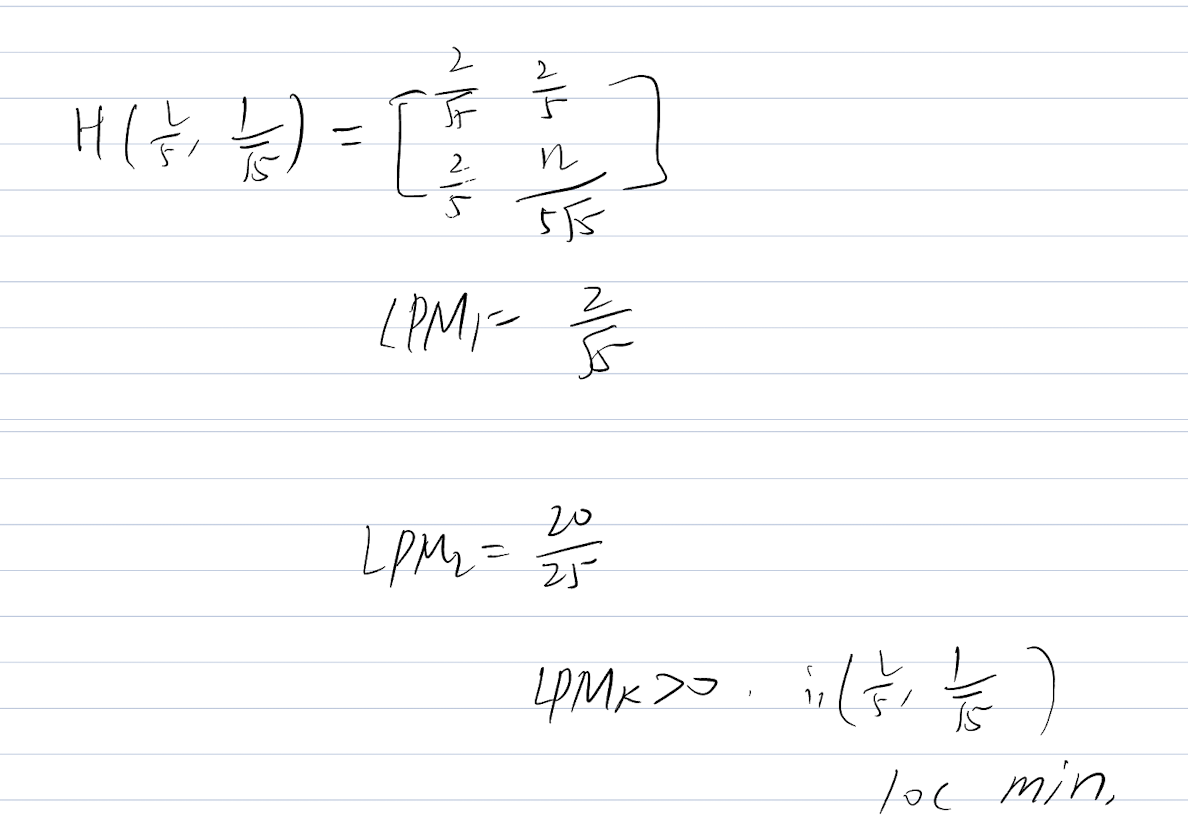 H(1/5, 1/√5) = [2/√5 2/5
2/5 12/5√5]
LPM₁ = 2/√5
LPM₂ = 20/25
LPMₖ>0. ii(1/5, 1/√5)
loc min.